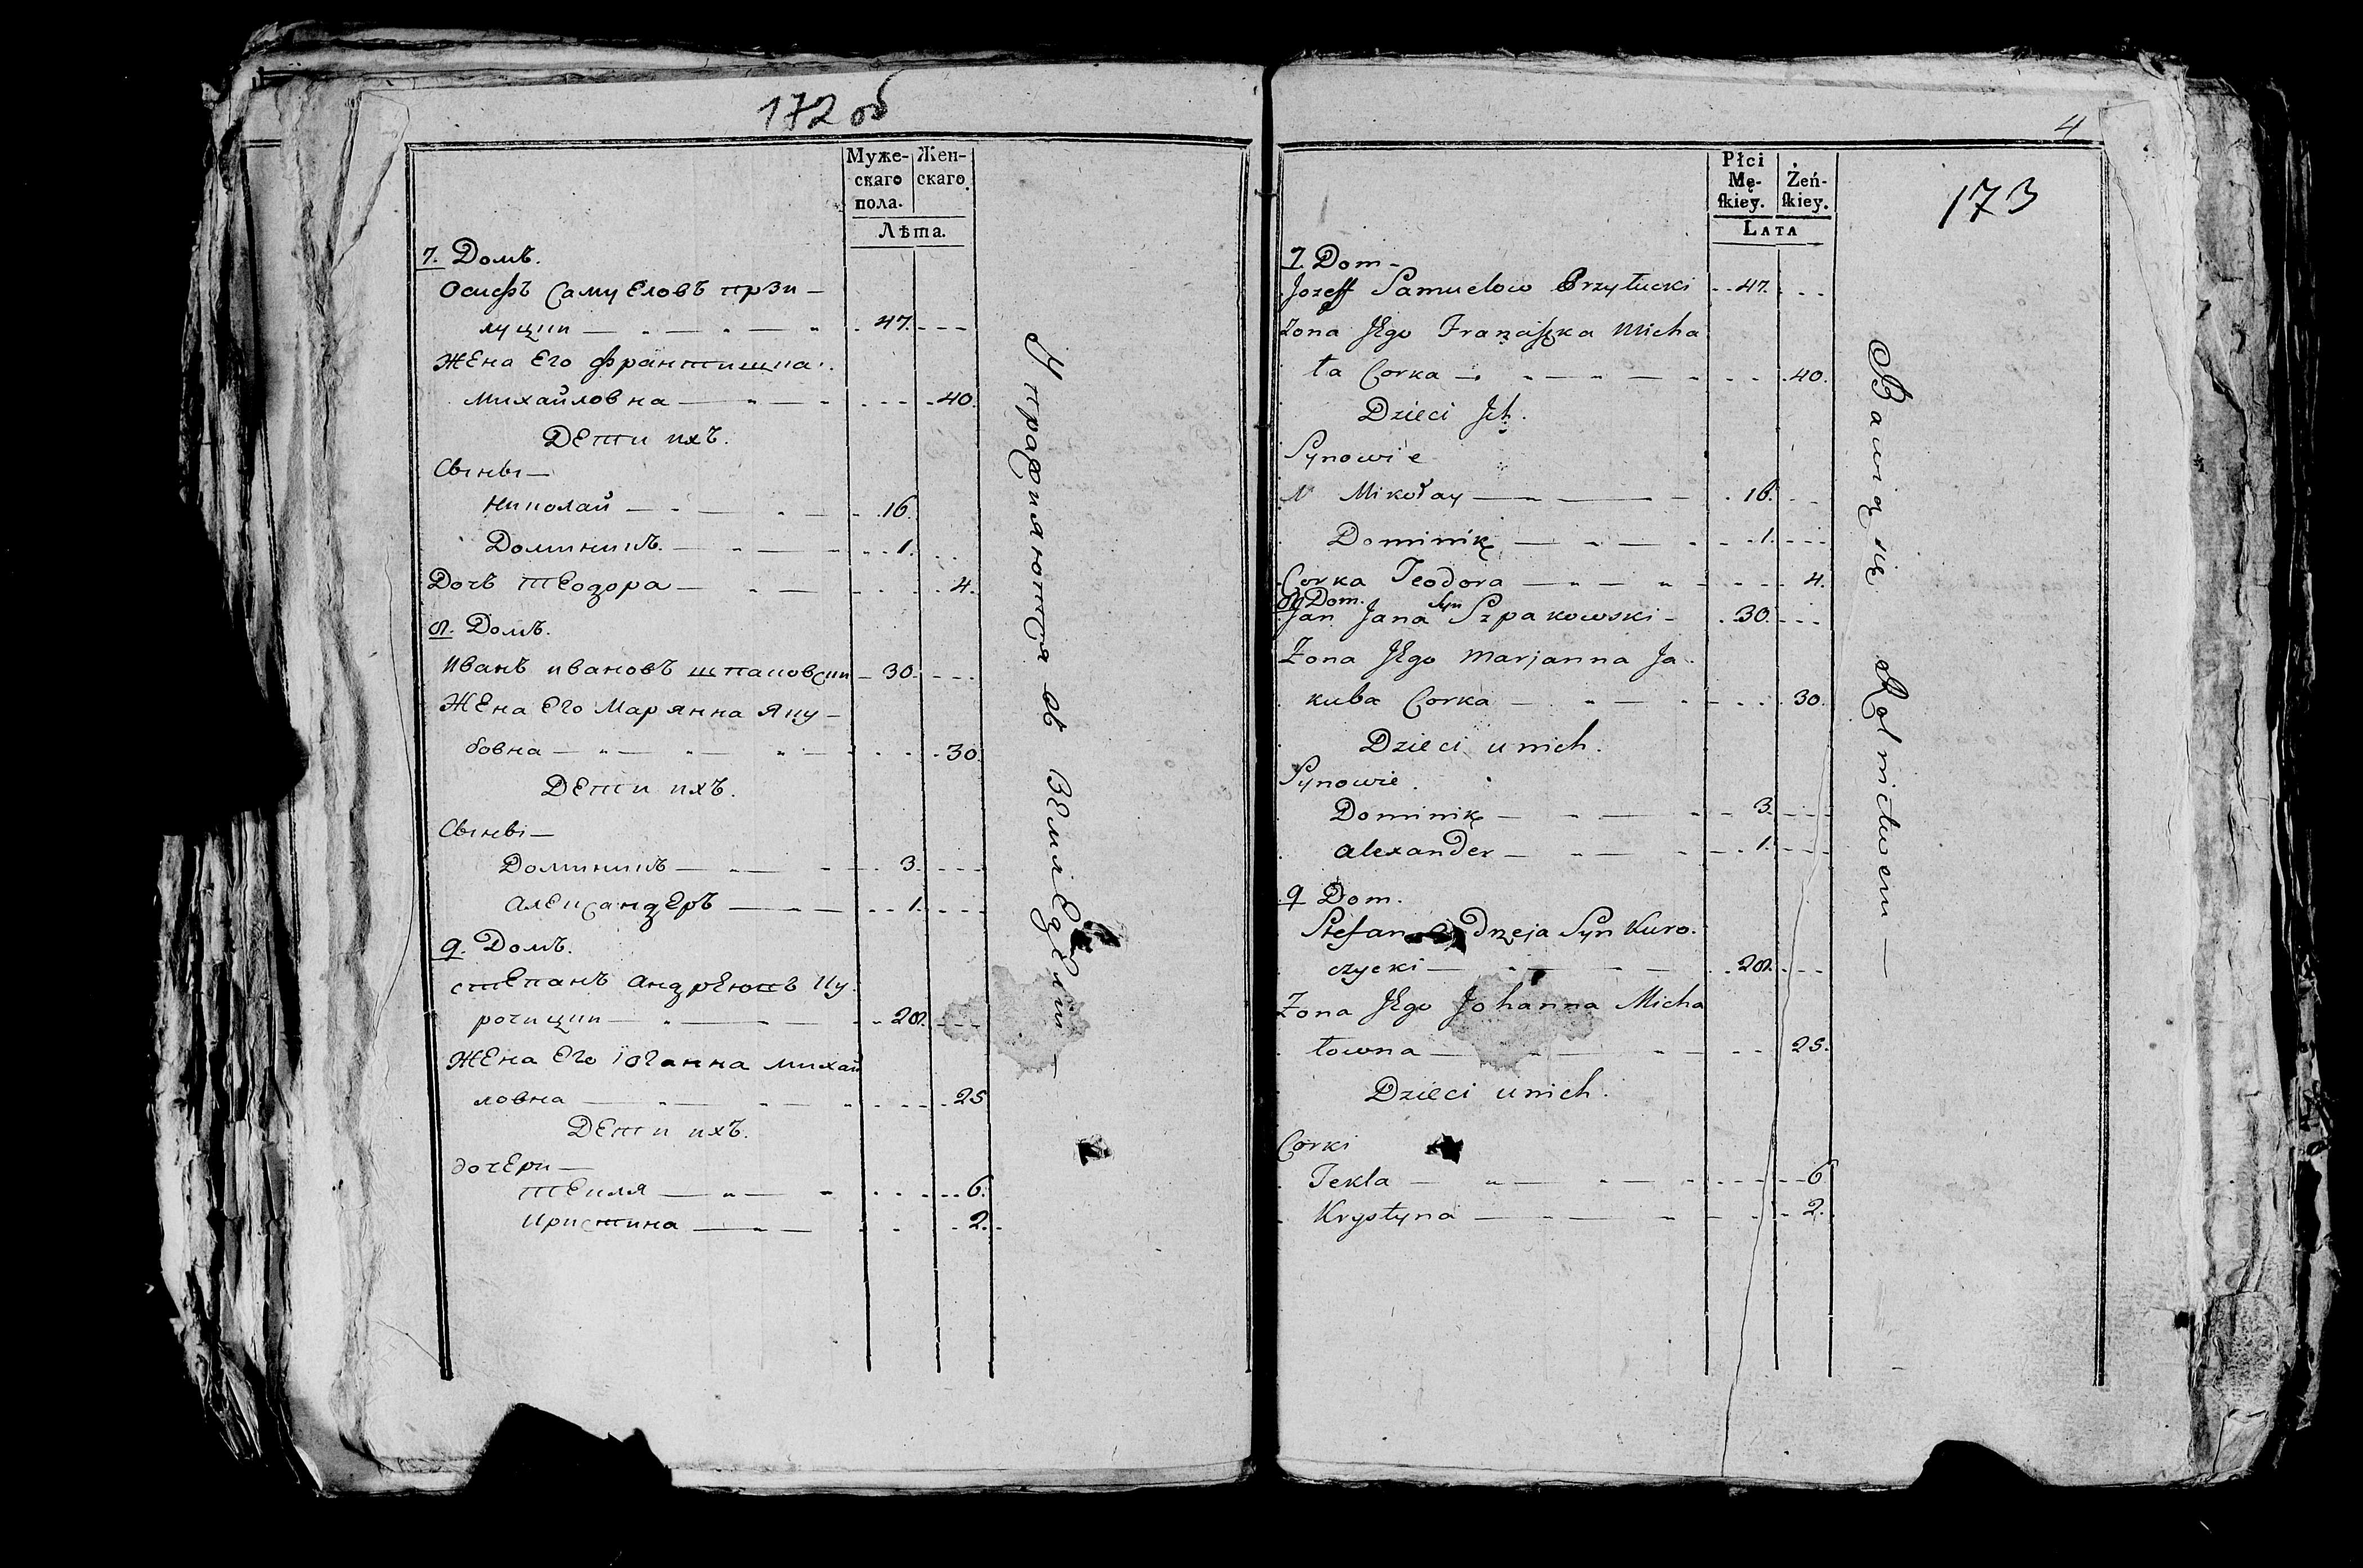 172 об
Муже- Жен-
скаго скаго.
пола.
Лѣта.
7. Домъ.
Осифъ Самуеловъ прзи-
луцки 47.
Жена Его Франтишка
Михайловна 40.
Дети ихъ.
Сынвы
Николай 16.
Доминикъ. 1.
Дочь Теодора 4.
8. Домъ.
Иванъ Ивановъ Шпаковски 30.
Жена Его Марянна Яку-
бовна 30.
Дети ихъ.
Сынвы
Доминикъ 3.
Александеръ 1.
9. Домъ.
Степанъ Андреювъ Ку
рочицки 28.
Жена Его Іоганна михай
ловна 25
Дети ихъ.
дочери
Текля 6.
Кристина 2.
Упражняются въ Земледели
4
173
Płci
Mę- Żeń-
skiey. skiey.
LATA
7. Dom
Jozeff Samuelow Przyłucki 47.
Zona Jego Franciszka Micha
ła Corka 40.
Dzieci Ich.
Synowie
Mikołay 16.
Dominik 1.
Corka Teodora 4.
8 Dom.
Jan Jana Syn Szpakowski 30.
Zona Jego Marjanna Ja
kuba Corka 30.
Dzieci unich.
Synowie.
Dominik 3.
Alexander 1.
9 Dom.
Stefan drzeja Syn Kuro.
czycki 28.
Zona Jego Johanna Micha
łowna 25.
Dzieci unich.
Corki
Tekla 6
Krystyna 2.
Bawią się Rolnictwem